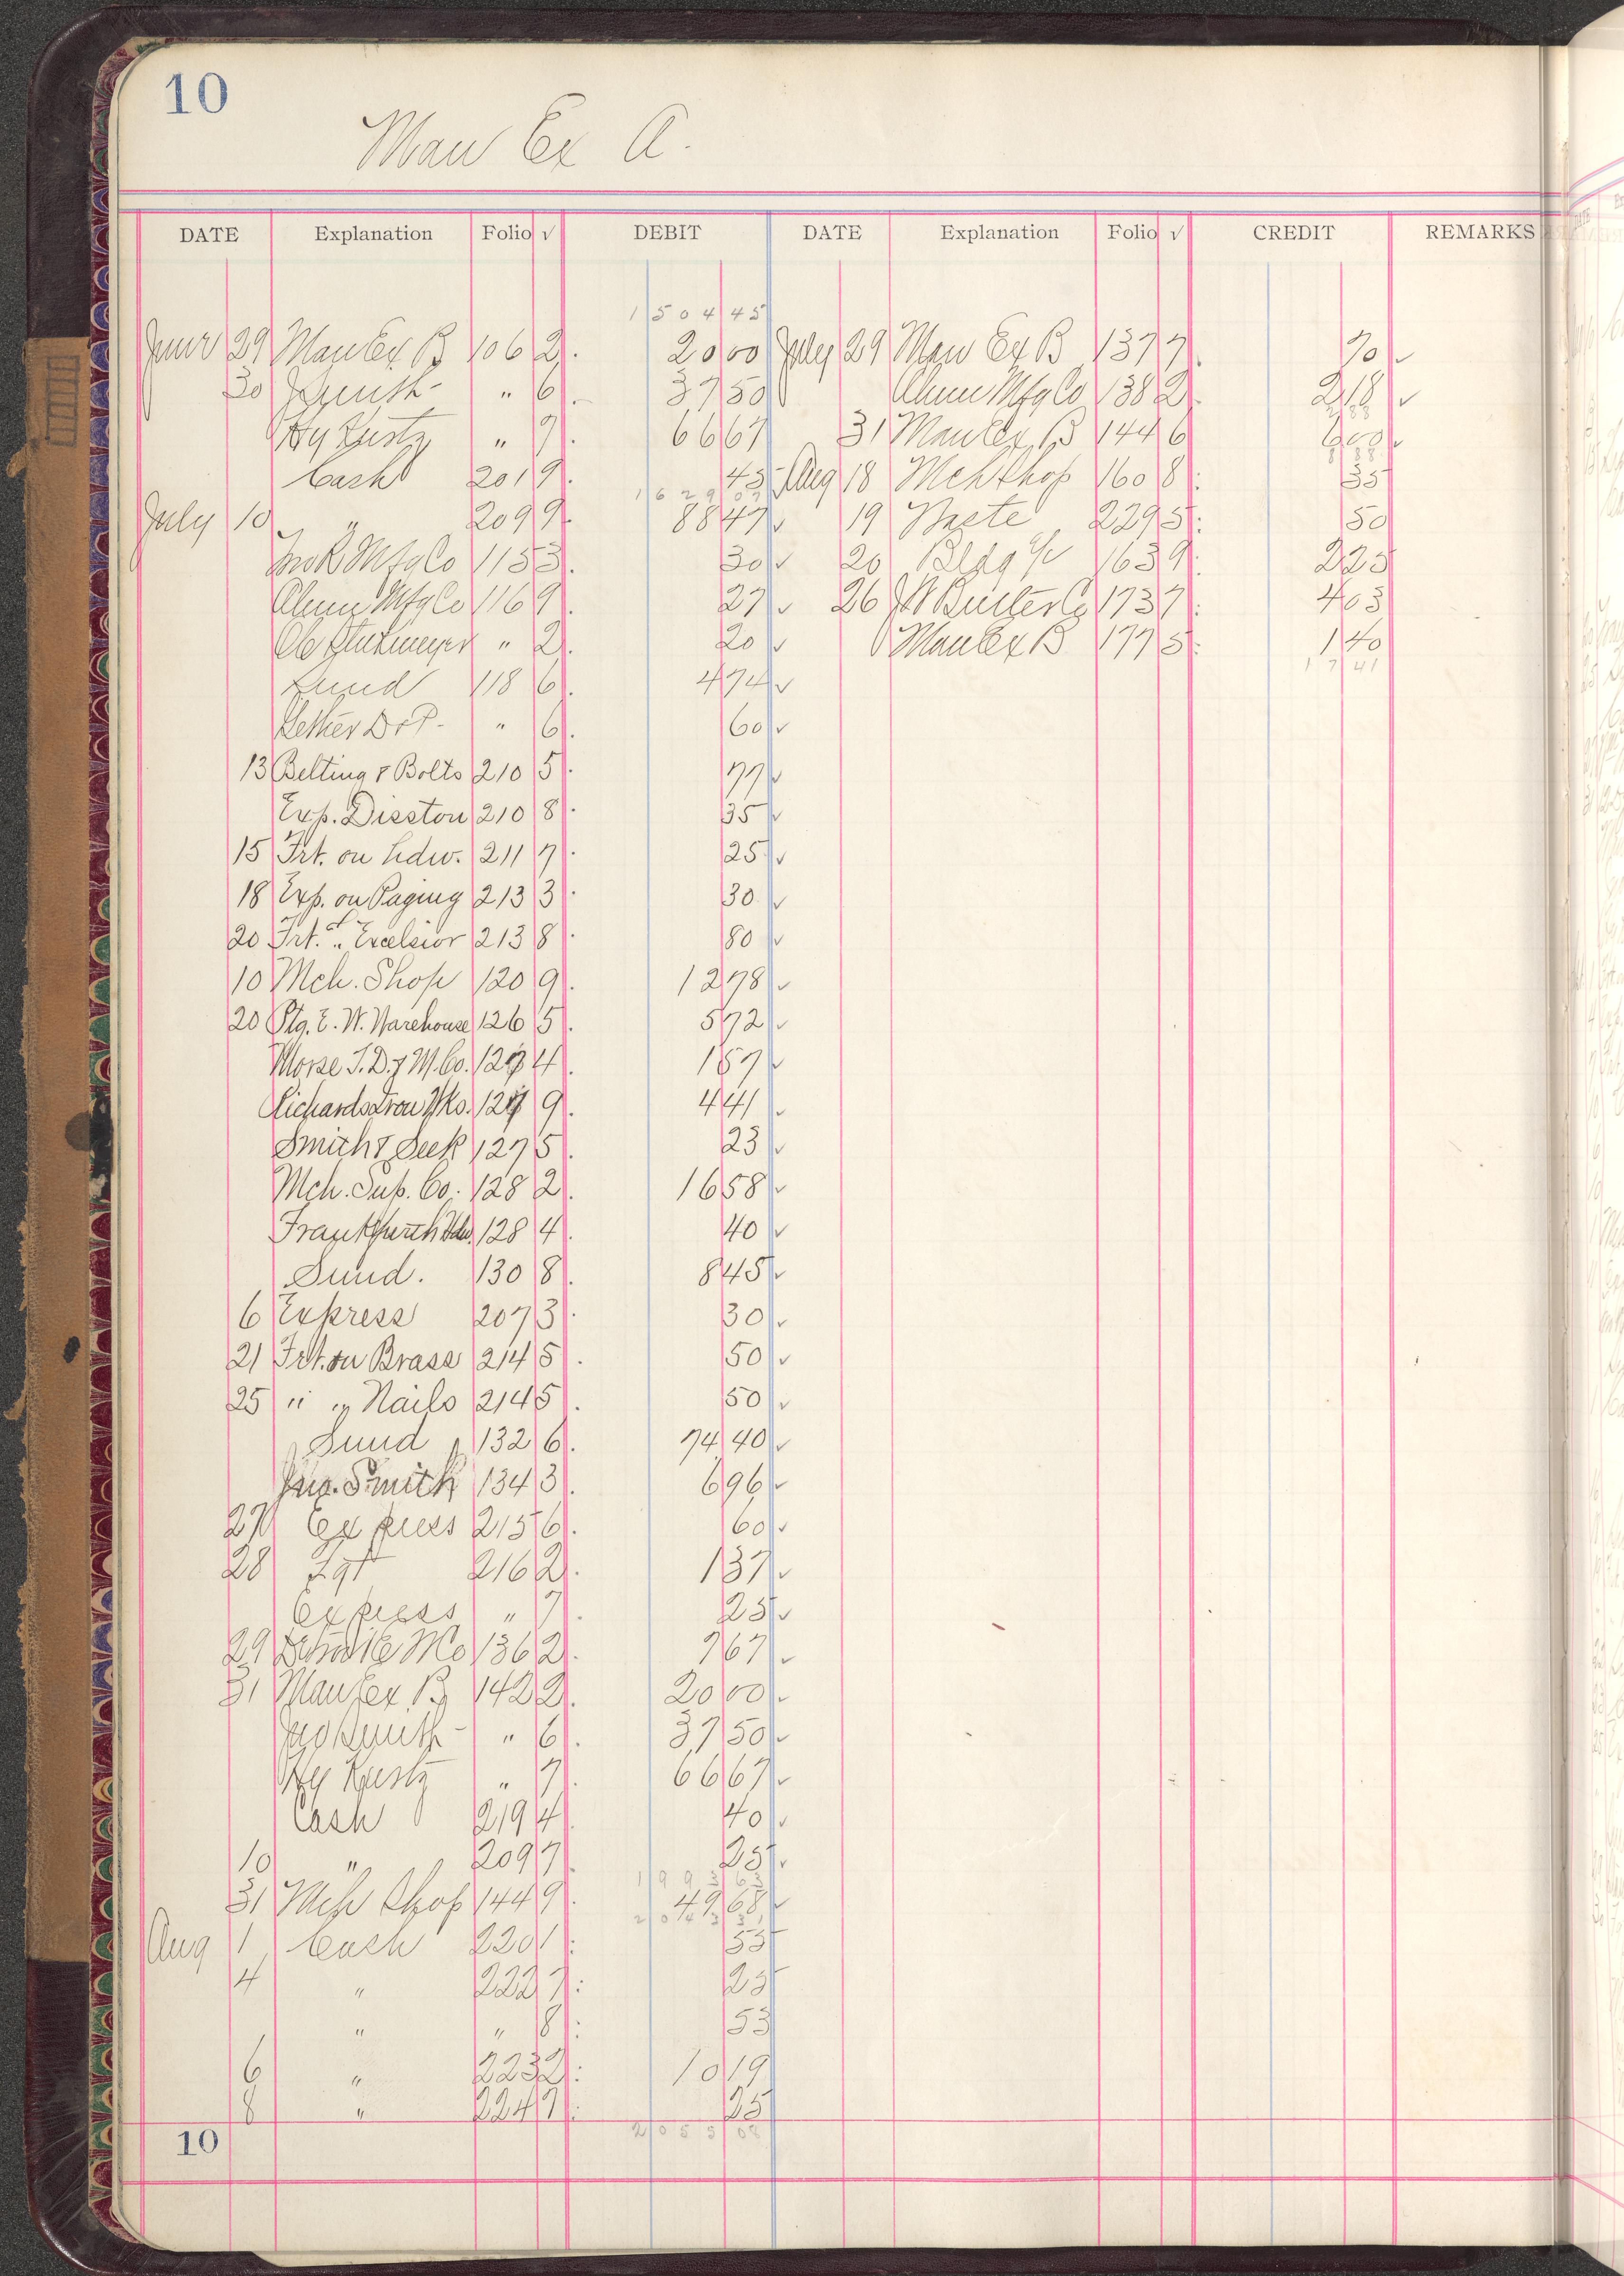 10
Man Ex A.
DATE Explanation Folio √ DEBIT DATE Explanation Folio √ CREDIT REMARKS
1 5 0 4 45
June 29 Man Ex. B 106 2 20 00 July 29 Man Ex B 137 7 70
30 Smith " 6 37 50 Alum Mfg Co 138 2 2 18
2 88
Hy Kurtz " 7 66 67 31 Man Ex. B 144 6 6 00
8 88
Cash 201 9 45 Aug 18 Mch Shop 160 8 35
1 6 2 9 07
July 10 " 209 9 88 47 19 Waste 229 5 50
Jno R Mfg Co 115 3 30 20 Bldg a/c 163 9 2 25
Alum Mfg Co 116 9 27 26 J W Butler Co 173 7 4 03
" 2 20 Man Ex B 177 5 1 40
1 7 41
Sund 118 6 4 74
D & P " 6 60
13 Belting & Bolts 210 5 77
Exp. Disston 210 8 35
15 Frt. on hdw. 211 7 25
18 Exp. on Paging 213 3 30
20 Frt. " Excelsior 213 8 80
10 Mch. Shop 120 9 12 78
20 Ptg. E. W. Warehouse 126 5 5 72
Morse T. D. & M. Co. 127 4 1 57
Richards Iron Wks. 127 9 4 41
Smith & Seek 127 5 23
Mch. Sup. Co. 128 2 16 58
Frankfurth Hdw. 128 4 40
Sund. 130 8 8 45
6 Express 207 3 30
21 Frt. on Brass 214 5 50
25 " " Nails 214 5 50
Sund 132 6 74 40
Jno. Smith 134 3 6 96
27 Express 215 6 60
28 Fgt 216 2 1 37
Express " 7 25
29 Co 136 2 7 67
31 Man Ex. B 142 2 20 00
Jno Smith " 6 37 50
Hy Kurtz " 7 66 67
Cash 219 4 40
10 " 209 7 25
1 9 9 3 63
31 Mch Shop 144 9 49 68
2 0 4 3 31
Aug 1 Cash 220 1 55
4 " 222 7 25
" " 8 53
6 " 223 2 10 19
8 " 224 7 25
2 0 5 5 08
10